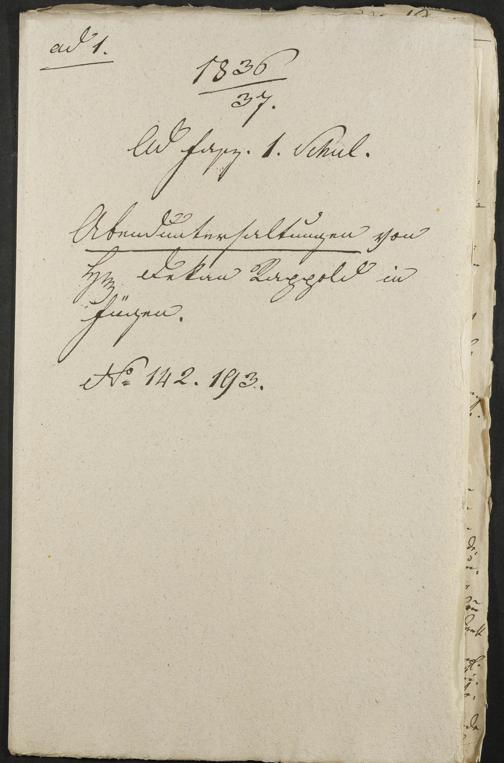 ad 1.
1836
37.
Ad fasz. 1. Schul.
Abendunterhaltungen von
Dekan Rappold in
Fügen.
No 142. 193.